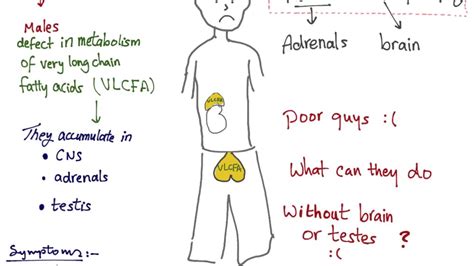 Males
defect in metabolism
of very long chain
fatty acids (VLCFA)
They accumulate in
• CNS
• adrenals
• testis
Symptoms:-
VLCFA
VLCFA
Adrenals brain
Poor guys :(
What can they do
Without brain
or testes ?
:(